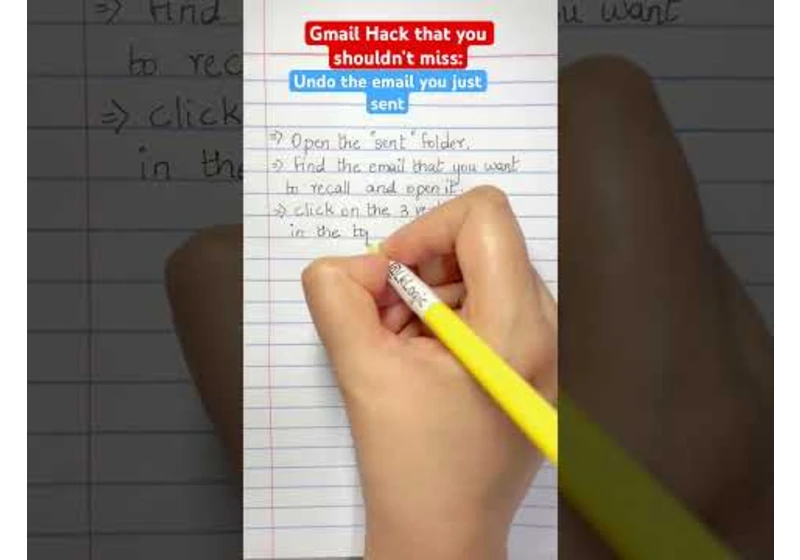 Gmail Hack that you
shouldn't miss:
Undo the email you just
sent
=> Open the "sent" folder.
=> Find the email that you want
to recall and open it.
=> click on the 3
in the
@LkLogic
=> Find
to rec
=> click
in the
u want